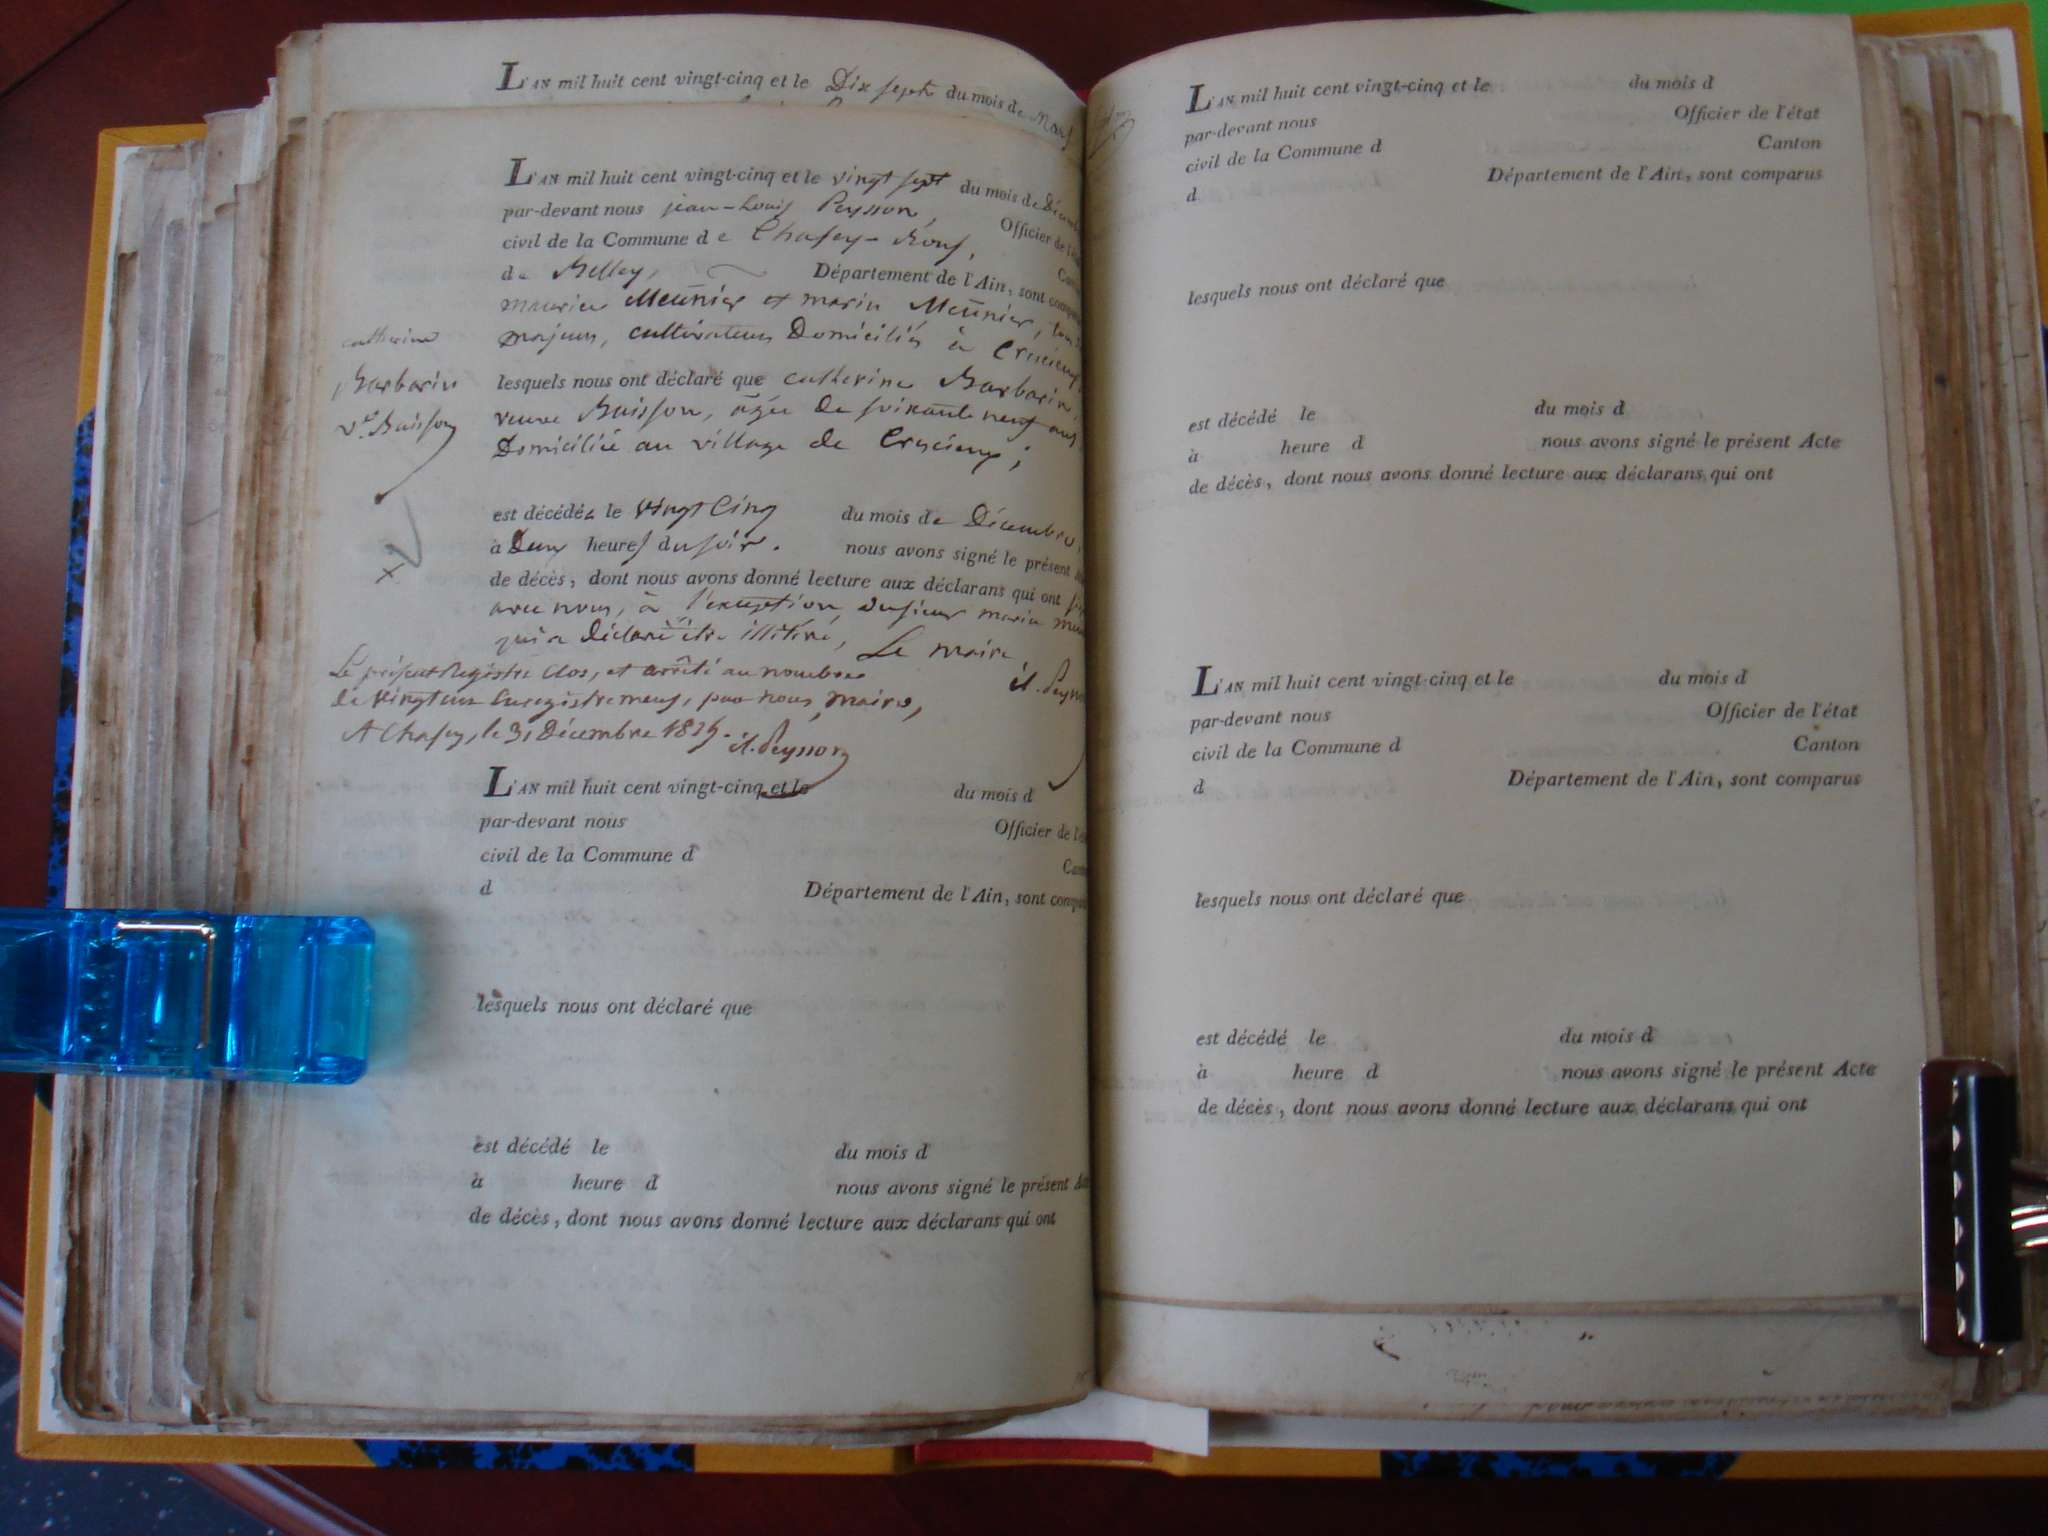 L'AN mil huit cent vingt-cinq et le Dix sept du mois de
L'AN mil huit cent vingt-cinq et le vingt sept du mois de
par-devant nous jean-Louis Peysson, Officier de
civil de la Commune de Chasey-Bons,
de Belley, Département de l'Ain, sont
maurice Meûnier et marin Meûnier,
majeurs, cultivateurs Domiciliés à Cressieux
lesquels nous ont déclaré que catherine Barbarin,
veuve Buisson, âgée de soixante neuf ans
Domiciliée au village de Cressieux;
catherine
Barbarin
ve. Buisson
est décédée le vingt Cinq du mois de Décembre,
à Deux heures du soir. nous avons signé le présent
de décès, dont nous avons donné lecture aux déclarans qui ont
avec nous, à l'exception du sieur marin
qui a déclaré être illitéré, Le maire
Le présent Registre clos, et arrêté au nombre
de vingt un Enregistremens, par nous, maire,
A Chasey, le 31 Décembre 1825. jl. Peysson
jl. Peysson
L'AN mil huit cent vingt-cinq et le du mois d
par-devant nous Officier de
civil de la Commune d
d Département de l'Ain, sont
lesquels nous ont déclaré que
est décédé le du mois d
à heure d nous avons signé le présent
de décès, dont nous avons donné lecture aux déclarans qui ont
L'AN mil huit cent vingt-cinq et le du mois d
par-devant nous Officier de l'état
civil de la Commune d Canton
d Département de l'Ain, sont comparus
lesquels nous ont déclaré que
est décédé le du mois d
à heure d nous avons signé le présent Acte
de décès, dont nous avons donné lecture aux déclarans qui ont
L'AN mil huit cent vingt-cinq et le du mois d
par-devant nous Officier de l'état
civil de la Commune d Canton
d Département de l'Ain, sont comparus
lesquels nous ont déclaré que
est décédé le du mois d
à heure d nous avons signé le présent Acte
de décès, dont nous avons donné lecture aux déclarans qui ont